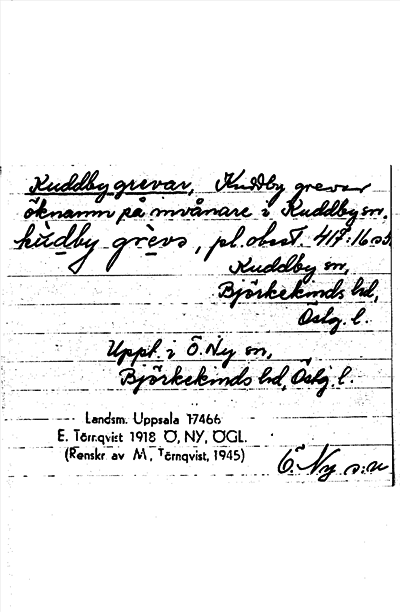 Kuddby grevar, Kuddby grevar
öknamn på invånare i Kuddby sn.
kùdby grèvs, pl. obest. 417:16 s.5
Kuddby sn,
Björkekinds hd,
Östg. l.
Uppt. i Ö. Ny sn,
Björkekinds hd, Östg. l.
Landsm. Uppsala 17466
E. Törnqvist 1918 Ö, NY, ÖGL.
(Renskr. av M. Törnqvist, 1945)
Ö. Ny s:n